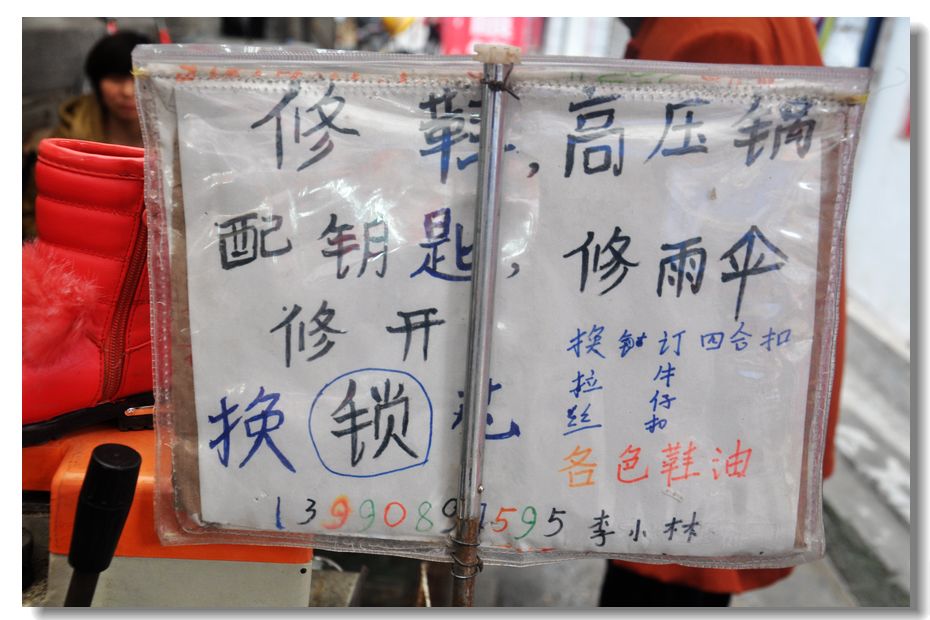 修鞋,高压锅
配钥匙,修雨伞
修开
换锁芯
换 订四合扣
拉丝 牛仔扣
各色鞋油
李小林